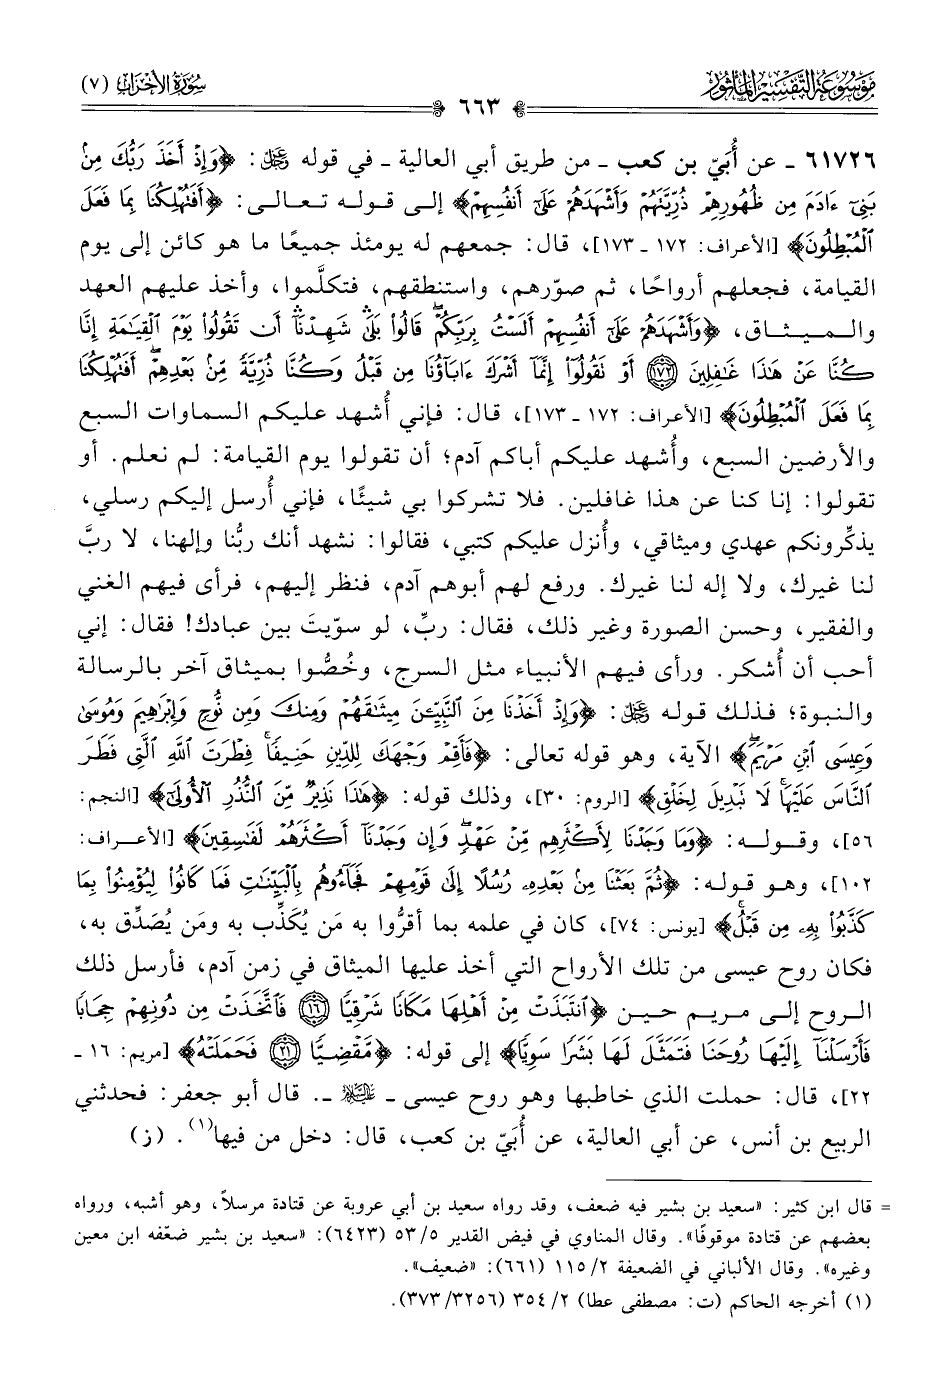 موسوعة التفسير المأثور
سورة الأحزاب (٧)
٦٦٣
٦١٧٢٦ - عن أُبَيّ بن كعب - من طريق أبي العالية - في قوله عز وجل: ﴿وَإِذْ أَخَذَ رَبُّكَ مِنْ
بَنِي ءَادَمَ مِن ظُهُورِهِمْ ذُرِّيَّتَهُمْ وَأَشْهَدَهُمْ عَلَىٰ أَنفُسِهِمْ﴾ إلى قوله تعالى: ﴿أَفَتُهْلِكُنَا بِمَا فَعَلَ
الْمُبْطِلُونَ﴾ [الأعراف: ١٧٢ - ١٧٣]، قال: جمعهم له يومئذ جميعًا ما هو كائن إلى يوم
القيامة، فجعلهم أرواحًا، ثم صوّرهم، واستنطقهم، فتكلَّموا، وأخذ عليهم العهد
والميثاق، ﴿وَأَشْهَدَهُمْ عَلَىٰ أَنفُسِهِمْ أَلَسْتُ بِرَبِّكُمْ ۖ قَالُوا۟ بَلَىٰ ۛ شَهِدْنَآ ۛ أَن تَقُولُوا۟ يَوْمَ الْقِيَٰمَةِ إِنَّا
كُنَّا عَنْ هَٰذَا غَٰفِلِينَ ۝١٧٢ أَوْ تَقُولُوٓا۟ إِنَّمَآ أَشْرَكَ ءَابَآؤُنَا مِن قَبْلُ وَكُنَّا ذُرِّيَّةً مِّنۢ بَعْدِهِمْ ۖ أَفَتُهْلِكُنَا
بِمَا فَعَلَ الْمُبْطِلُونَ﴾ [الأعراف: ١٧٢ - ١٧٣]، قال: فإني أُشهد عليكم السماوات السبع
والأرضين السبع، وأُشهد عليكم أباكم آدم؛ أن تقولوا يوم القيامة: لم نعلم. أو
تقولوا: إنا كنا عن هذا غافلين. فلا تشركوا بي شيئًا، فإني أُرسل إليكم رسلي،
يذكِّرونكم عهدي وميثاقي، وأُنزل عليكم كتبي، فقالوا: نشهد أنك ربُّنا وإلهنا، لا ربَّ
لنا غيرك، ولا إله لنا غيرك. ورفع لهم أبوهم آدم، فنظر إليهم، فرأى فيهم الغني
والفقير، وحسن الصورة وغير ذلك، فقال: ربِّ، لو سوّيتَ بين عبادك! فقال: إني
أحب أن أُشكر. ورأى فيهم الأنبياء مثل السرج، وخُصُّوا بميثاق آخر بالرسالة
والنبوة؛ فذلك قوله عز وجل: ﴿وَإِذْ أَخَذْنَا مِنَ النَّبِيِّـۧنَ مِيثَٰقَهُمْ وَمِنكَ وَمِن نُّوحٍ وَإِبْرَٰهِيمَ وَمُوسَىٰ
وَعِيسَى ابْنِ مَرْيَمَ﴾ الآية، وهو قوله تعالى: ﴿فَأَقِمْ وَجْهَكَ لِلدِّينِ حَنِيفًا ۚ فِطْرَتَ اللَّهِ الَّتِي فَطَرَ
النَّاسَ عَلَيْهَا ۚ لَا تَبْدِيلَ لِخَلْقِ﴾ [الروم: ٣٠]، وذلك قوله: ﴿هَٰذَا نَذِيرٌ مِّنَ النُّذُرِ الْأُولَىٰ﴾ [النجم:
٥٦]، وقوله: ﴿وَمَا وَجَدْنَا لِأَكْثَرِهِم مِّنْ عَهْدٍ ۖ وَإِن وَجَدْنَآ أَكْثَرَهُمْ لَفَٰسِقِينَ﴾ [الأعراف:
١٠٢]، وهو قوله: ﴿ثُمَّ بَعَثْنَا مِنۢ بَعْدِهِۦ رُسُلًا إِلَىٰ قَوْمِهِمْ فَجَآءُوهُم بِالْبَيِّنَٰتِ فَمَا كَانُوا۟ لِيُؤْمِنُوا۟ بِمَا
كَذَّبُوا۟ بِهِۦ مِن قَبْلُ﴾ [يونس: ٧٤]، كان في علمه بما أقرُّوا به مَن يُكَذِّب به ومَن يُصَدِّق به،
فكان روح عيسى من تلك الأرواح التي أخذ عليها الميثاق في زمن آدم، فأرسل ذلك
الروح إلى مريم حين ﴿انتَبَذَتْ مِنْ أَهْلِهَا مَكَانًا شَرْقِيًّا ۝١٦ فَاتَّخَذَتْ مِن دُونِهِمْ حِجَابًا
فَأَرْسَلْنَآ إِلَيْهَا رُوحَنَا فَتَمَثَّلَ لَهَا بَشَرًا سَوِيًّا﴾ إلى قوله: ﴿مَّقْضِيًّا ۝٢١ فَحَمَلَتْهُ﴾ [مريم: ١٦ -
٢٢]، قال: حملت الذي خاطبها وهو روح عيسى - عليه السلام -. قال أبو جعفر: فحدثني
الربيع بن أنس، عن أبي العالية، عن أُبَيّ بن كعب، قال: دخل من فيها(١). (ز)
= قال ابن كثير: «سعيد بن بشير فيه ضعف، وقد رواه سعيد بن أبي عروبة عن قتادة مرسلاً، وهو أشبه، ورواه
بعضهم عن قتادة موقوفًا». وقال المناوي في فيض القدير ٥/ ٥٣ (٦٤٢٣): «سعيد بن بشير ضعّفه ابن معين
وغيره». وقال الألباني في الضعيفة ٢/ ١١٥ (٦٦١): «ضعيف».
(١) أخرجه الحاكم (ت: مصطفى عطا) ٢/ ٣٥٤ (٣٢٥٦/ ٣٧٣).